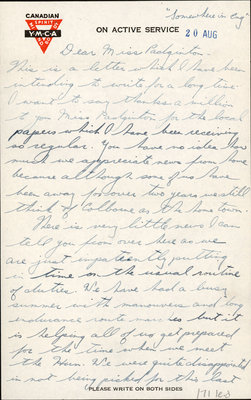 CANADIAN
SPIRIT
Y.M.C.A.
MIND BODY
ON ACTIVE SERVICE
"Somewhere in Eng"
20 AUG
Dear Miss
This is a letter which I have been
intending to write for a long time.
I want to say thanks a million
to you Miss for the local
papers which I have been receiving
so regular. You have no idea how
much we appreciate news from home
because although some of us have
been away for over two years we still
think of Colborne as the home town.
Here is very little news I can
tell you from over here as we
are just impatiently putting
in time on the usual routine
of duties. We have had a busy
summer with manouvers and long
endurance route marches but it
is helping all of us get prepared
for the time when we meet
the Hun. We were quite disappointed
in not being picked for this last
PLEASE WRITE ON BOTH SIDES